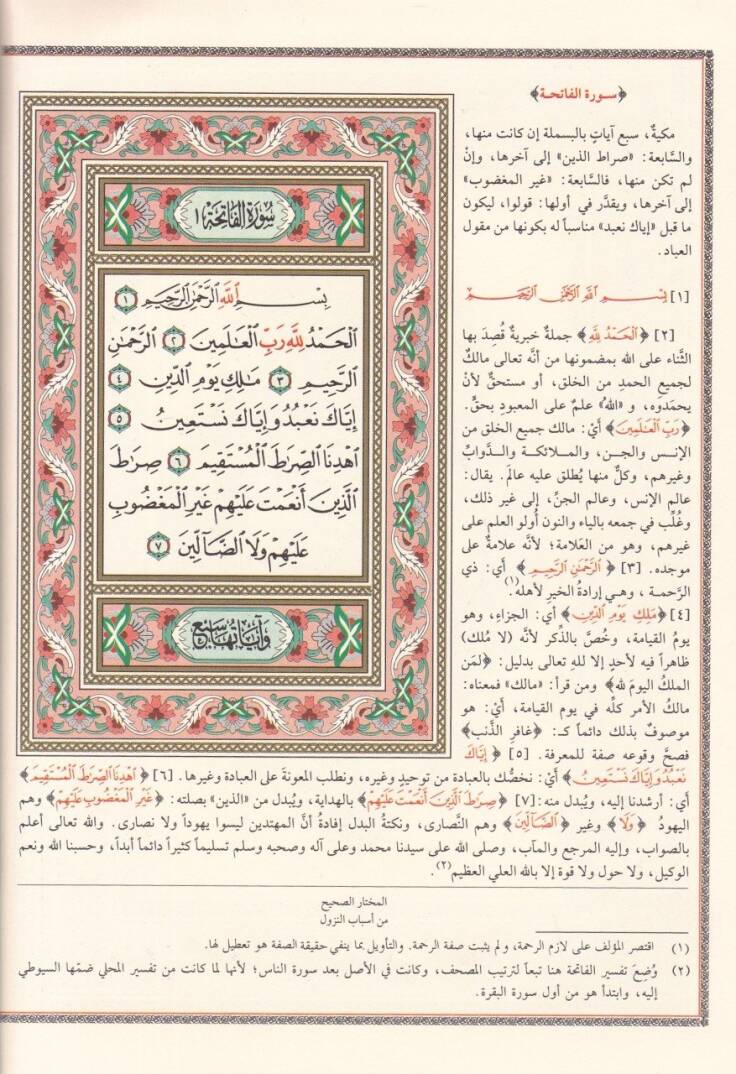 ﴿سورة الفاتحة﴾
مكيةٌ، سبع آياتٍ بالبسملة إن كانت منها،
والسَّابعة: «صراط الذين» إلى آخرها، وإنْ
لم تكن منها، فالسَّابعة: «غير المغضوب»
إلى آخرها، ويقدَّر في أولها: قولوا، ليكون
ما قبل «إياك نعبد» مناسباً له بكونها من مقول
العباد.
[١] بِسْمِ اللَّهِ الرَّحْمَٰنِ الرَّحِيمِ
[٢] ﴿الْحَمْدُ لِلَّهِ﴾ جملةٌ خبريةٌ قُصِدَ بها
الثَّناء على الله بمضمونها من أنَّه تعالى مالكٌ
لجميع الحمدِ من الخلق، أو مستحقٌّ لأنْ
يحمَدوه، و «اللهُ» علمٌ على المعبودِ بحقٍّ.
﴿رَبِّ الْعَالَمِينَ﴾ أيْ: مالك جميع الخلق من
الإنـس والجـن، والمـلائكـة والـدَّوابِّ
وغيرهم، وكلٌّ منها يُطلق عليه عالَم. يقال:
عالم الإنس، وعالم الجنِّ، إلى غير ذلك،
وغُلِّب في جمعه بالياء والنون أُولو العلم على
غيرهم، وهو من العَلامة؛ لأنَّه علامةٌ على
موجده. [٣] ﴿الرَّحْمَٰنِ الرَّحِيمِ﴾ أي: ذي
الرَّحمـة، وهـي إرادةُ الخيرِ لأهله(١).
[٤] ﴿مَٰلِكِ يَوْمِ الدِّينِ﴾ أي: الجزاءِ، وهو
يومُ القيامة، وخُصَّ بالذكر لأنَّه (لا مُلك)
ظاهراً فيه لأحدٍ إلا للهِ تعالى بدليل: ﴿لمَن
الملكُ اليومَ لله﴾ ومن قرأ: «مالك» فمعناه:
مالكُ الأمر كلِّه في يوم القيامة، أيْ: هو
موصوفٌ بذلك دائماً كـ: ﴿غافرِ الذَّنب﴾
فصحَّ وقوعه صفة للمعرفة. [٥] ﴿إِيَّاكَ
نَعْبُدُ وَإِيَّاكَ نَسْتَعِينُ﴾ أيْ: نخصُّك بالعبادة من توحيدٍ وغيره، ونطلب المعونةَ على العبادة وغيرها. [٦] ﴿اهْدِنَا الصِّرَاطَ الْمُسْتَقِيمَ﴾
أي: أرشدنا إليه، ويُبدل منه: [٧] ﴿صِرَاطَ الَّذِينَ أَنْعَمْتَ عَلَيْهِمْ﴾ بالهداية، ويُبدل من «الذين» بصلته: ﴿غَيْرِ الْمَغْضُوبِ عَلَيْهِمْ﴾ وهم
اليهودُ ﴿وَلَا﴾ وغير ﴿الضَّآلِّينَ﴾ وهم النَّصارى، ونكتةُ البدل إفادةُ أنَّ المهتدين ليسوا يهوداً ولا نصارى. والله تعالى أعلم
بالصواب، وإليه المرجع والمآب، وصلى الله على سيدنا محمد وعلى آله وصحبه وسلم تسليماً كثيراً دائماً أبداً، وحسبنا الله ونعم
الوكيل، ولا حول ولا قوة إلا بالله العلي العظيم(٢).
سُورَةُ الفَاتِحَةِ ١
بِسْمِ اللَّهِ الرَّحْمَٰنِ الرَّحِيمِ ١
الْحَمْدُ لِلَّهِ رَبِّ الْعَٰلَمِينَ ٢ الرَّحْمَٰنِ
الرَّحِيمِ ٣ مَٰلِكِ يَوْمِ الدِّينِ ٤
إِيَّاكَ نَعْبُدُ وَإِيَّاكَ نَسْتَعِينُ ٥
اهْدِنَا الصِّرَٰطَ الْمُسْتَقِيمَ ٦ صِرَٰطَ
الَّذِينَ أَنْعَمْتَ عَلَيْهِمْ غَيْرِ الْمَغْضُوبِ
عَلَيْهِمْ وَلَا الضَّآلِّينَ ٧
وَآيَاتُهَا سَبْعٌ
المختار الصحيح
من أسباب النزول
(١) اقتصر المؤلف على لازم الرحمة، ولم يثبت صفة الرحمة. والتأويل بما ينفي حقيقة الصفة هو تعطيل لها.
(٢) وُضِعَ تفسير الفاتحة هنا تبعاً لترتيب المصحف، وكانت في الأصل بعد سورة الناس؛ لأنها لما كانت من تفسير المحلي ضمّها السيوطي
إليه، وابتدأ هو من أول سورة البقرة.